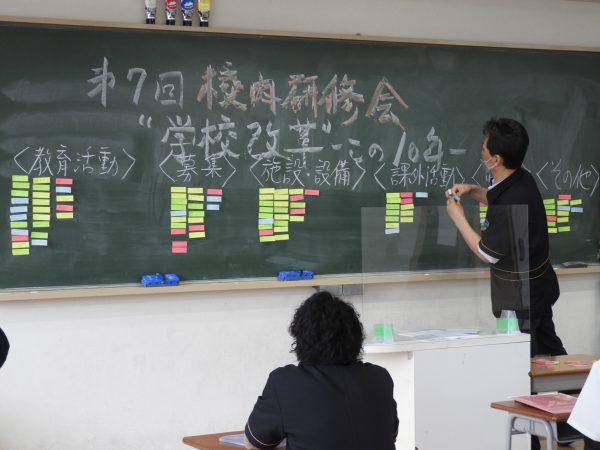 第7回 校内研修会
"学校改革"この10年
〈教育活動〉 〈募集〉 〈施設・設備〉 〈課外活動〉 〈その他〉